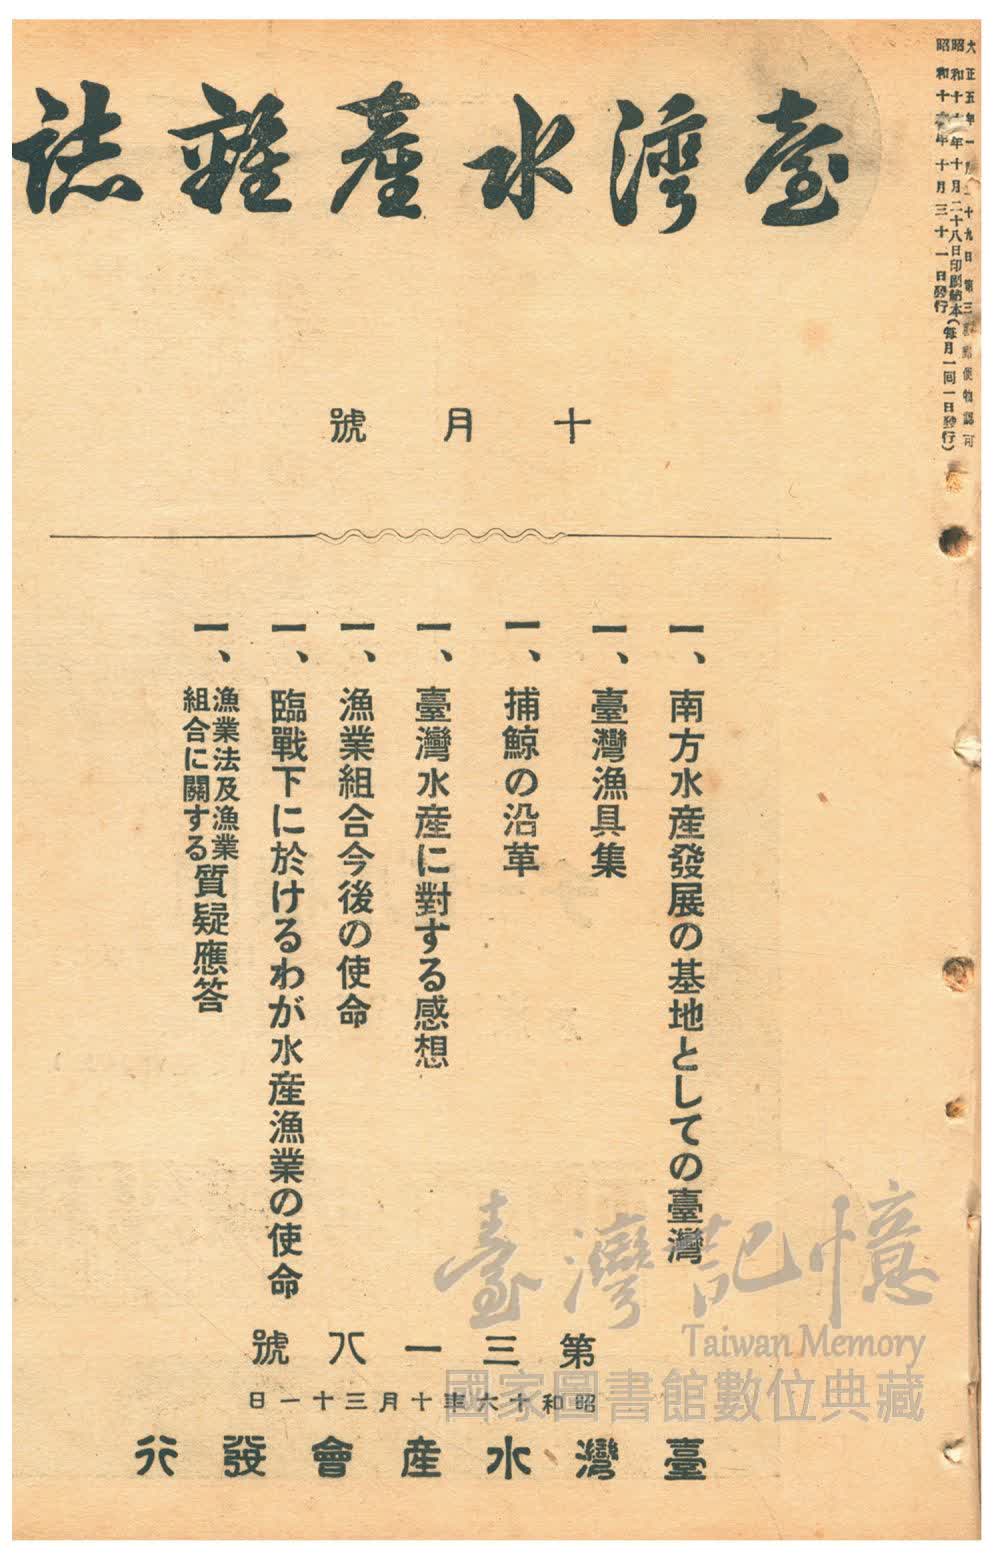 大正五年一月二十九日第三種郵便物認可
昭和十六年十月二十八日印刷納本(每月一回一日發行)
昭和十六年十月三十一日發行
臺灣水產雜誌
十月號
一、南方水産發展の基地としての臺灣
一、臺灣漁具集
一、捕鯨の沿革
一、臺灣水産に對する感想
一、漁業組合今後の使命
一、臨戰下に於けるわが水産漁業の使命
一、漁業法及漁業組合に關する質疑應答
第三一八號
昭和十六年十月三十一日
臺灣水産會發行
臺灣記憶
Taiwan Memory
國家圖書館數位典藏